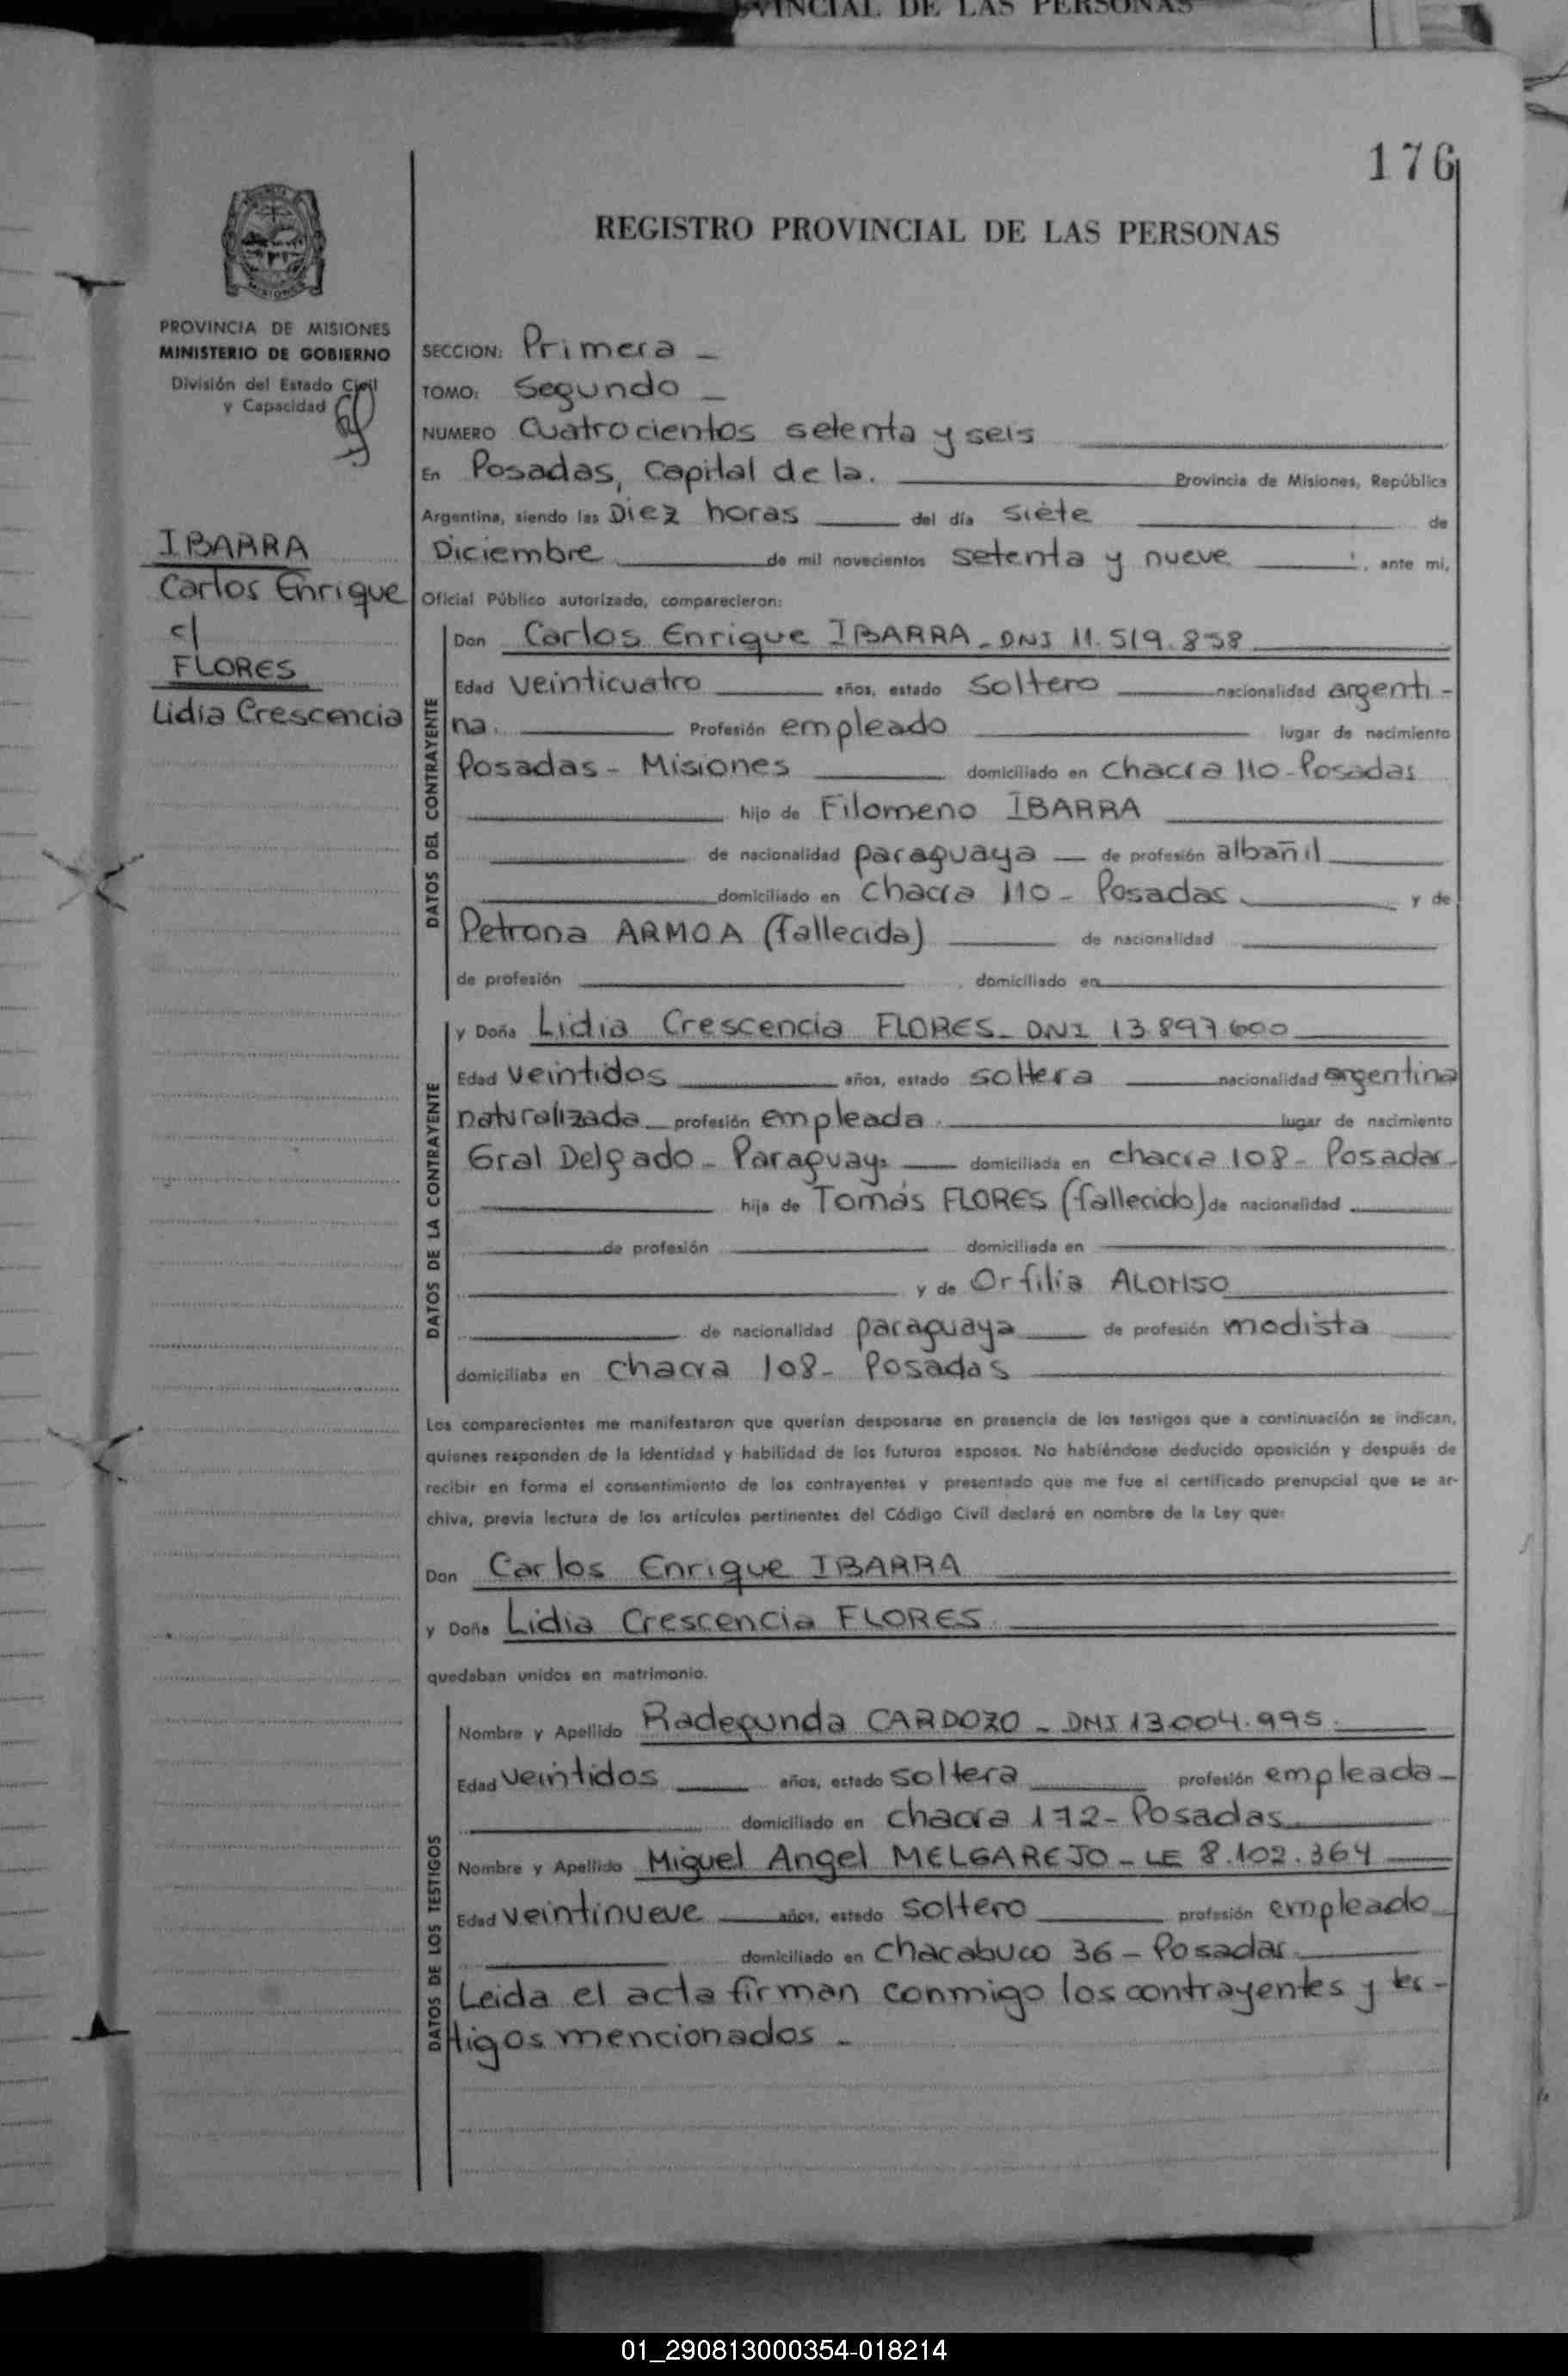 VINCIAL DE LAS PERSONAS
176
REGISTRO PROVINCIAL DE LAS PERSONAS
MISIONES
PROVINCIA DE MISIONES
MINISTERIO DE GOBIERNO
División del Estado Civil
y Capacidad
IBARRA
Carlos Enrique
c/
FLORES
Lidia Crescencia
SECCION: Primera -
TOMO: Segundo -
NUMERO Cuatrocientos setenta y seis
En Posadas, Capital de la. Provincia de Misiones, República
Argentina, siendo las Diez horas del día siete de
Diciembre de mil novecientos setenta y nueve, ante mi,
Oficial Público autorizado, comparecieron:
DATOS DEL CONTRAYENTE
Don Carlos Enrique IBARRA - DNI 11.519.858
Edad veinticuatro años, estado soltero nacionalidad argenti-
na. Profesión empleado lugar de nacimiento
Posadas - Misiones domiciliado en chacra 110 - Posadas
hijo de Filomeno IBARRA
de nacionalidad paraguaya de profesión albañil
domiciliado en chacra 110 - Posadas y de
Petrona ARMOA (fallecida) de nacionalidad
de profesión domiciliado en
DATOS DE LA CONTRAYENTE
y Doña Lidia Crescencia FLORES - DNI 13.897.600
Edad veintidos años, estado soltera nacionalidad argentina
naturalizada profesión empleada lugar de nacimiento
Gral Delgado - Paraguay domiciliada en chacra 108 - Posadas
hija de Tomás FLORES (fallecido) de nacionalidad
de profesión domiciliada en
y de Orfilia ALONSO
de nacionalidad paraguaya de profesión modista
domiciliaba en chacra 108 - Posadas
Los comparecientes me manifestaron que querían desposarse en presencia de los testigos que a continuación se indican,
quienes responden de la identidad y habilidad de los futuros esposos. No habiéndose deducido oposición y después de
recibir en forma el consentimiento de los contrayentes y presentado que me fue el certificado prenupcial que se ar-
chiva, previa lectura de los artículos pertinentes del Código Civil declaré en nombre de la Ley que:
Don Carlos Enrique IBARRA
y Doña Lidia Crescencia FLORES
quedaban unidos en matrimonio.
DATOS DE LOS TESTIGOS
Nombre y Apellido Radegunda CARDOZO - DNI 13.004.995
Edad veintidos años, estado soltera profesión empleada -
domiciliado en chacra 172 - Posadas
Nombre y Apellido Miguel Angel MELGAREJO - LE 8.102.364
Edad veintinueve años, estado soltero profesión empleado
domiciliado en Chacabuco 36 - Posadas
Leida el acta firman conmigo los contrayentes y tes-
tigos mencionados -
01_290813000354-018214